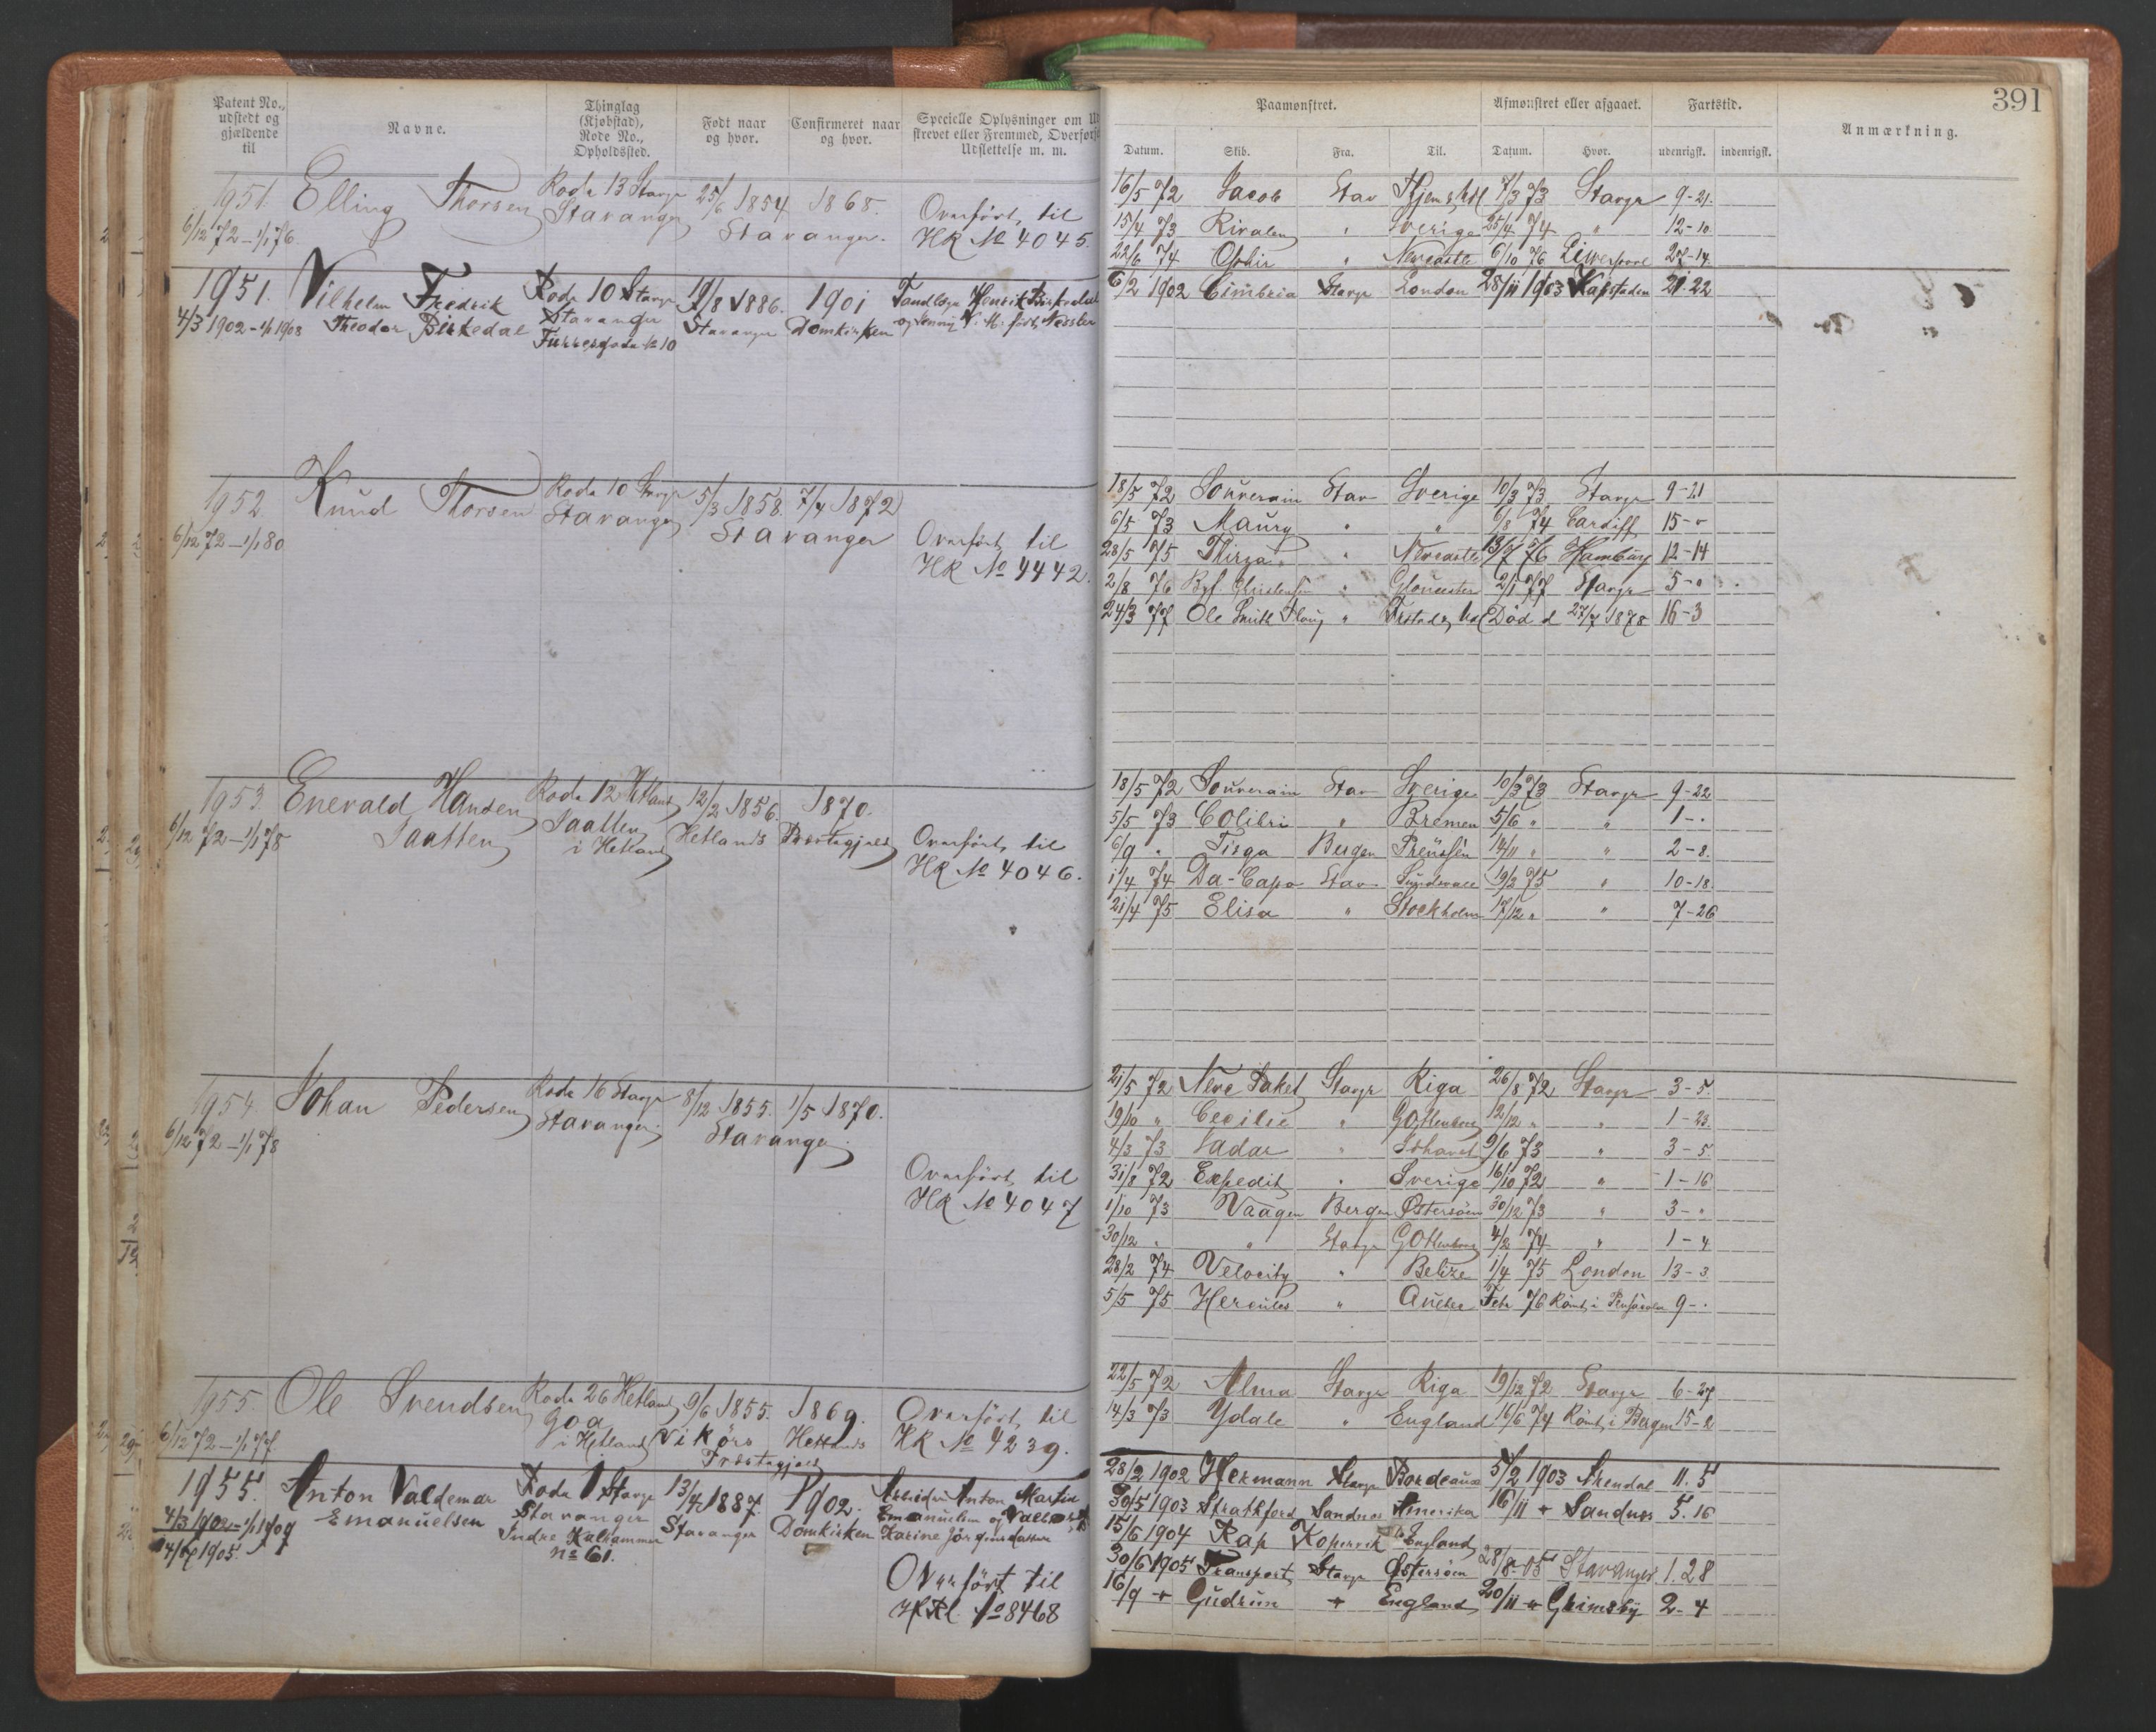 Patent No., udstedt og gjældende til
Navne.
Thinglag (Kjøbstad), Rode No., Opholdssted.
Født naar og hvor.
Confirmeret naar og hvor.
Specielle Oplysninger om
skrevet eller Fremmed, Overført
Udslettelse m. m.
Paamønstret.
Afmønstret eller afgaaet.
Fartstid.
Anmærkning.
391
Datum. Skib. Fra. Til. Datum. Hvor. udenrigsk. indenrigsk.
1951. Elling Thorsen Rode 13 Stavgr 25/6 1854 1868.
6/12 72 – 1/1 76. Stavanger Stavanger. Overført til
HR No 4045
16/5 72 Jacob Stav Hjem 7/3 73 Stavgr 9-21.
15/4 73 Rivalen " Sverige 25/4 74 " 12-10
22/6 74 Ophir " Newcastle 6/10 76 Liverpool 27-14
1951. Vilhelm Fredrik Rode 10 Stavgr 19/8 1886. 1901 Tandlæge Henrik Birkedal
4/3 1902 – 1/1 1908 Theodor Birkedal Stavanger Stavanger Domkirken
No 10
6/2 1902 Cimbria Stavgr London 28/11 1903 Kapstaden 21.22
1952. Knud Thorsen Rode 10 Stavgr 5/3 1858. 7/4 1872
6/12 72 – 1/1 80 Stavanger Stavanger Overført til
HR No 4442.
18/5 72 Souverain Stav Sverige 10/3 73 Stavgr 9-21
6/5 73 Maury " " 6/8 74 Cardiff 15-"
28/5 75 Thirza " Newcastle 13/7 76 Hamburg 12-14
2/8 76 Christensen " Gloucester 2/1 77 Stavgr 5-"
24/3 77 Ole Smith Ploug " Død d 27/7 1878 16-3
1953. Enevald Hansen Rode 12 Hetland 12/2 1856. 1870.
6/12 72 – 1/1 78 Saatten Saatten i Hetland Hetlands Præstegjæld Overført til
HR No 4046.
18/5 72 Souverain Stav Sverige 10/3 73 Stavgr 9-22
5/5 73 Colibri " Bremen 5/6 " " 1-"
6/9 " Tisga Bergen Preussen 14/11 " " 2-8.
1/4 74 Da-Capo Stav Sundsvall 19/2 75 " 10-18.
21/4 75 Elisa " Stockholm 17/12 " " 7-26
1954. Johan Pedersen Rode 16 Stavgr 8/12 1855. 1/5 1870.
6/12 72 – 1/1 78 Stavanger. Stavanger.
Overført til
HR No 4047
21/5 72 Neve Paket Stavgr Riga 26/8 72 Stavgr 3-5.
19/10 " Cecilie " Gothenborg 12/12 " " 1-23.
4/3 73 Sadar " 9/6 73 " 3-5
31/8 72 Expedit " Sverige 16/10 72 " 1-16
1/10 73 Vaagen Bergen Østersøen 30/12 73 " 3-"
30/12 " " Stavgr Gothenborg 4/2 74 " 1-4
28/2 74 Velocity " Belize 1/4 75 London 13-3
5/5 75 Hercules " Feb 76 Rømt i 9-"
1955. Ole Svendsen Rode 26 Hetland 9/6 1855. 1869. Overført til
6/12 72 – 1/1 77 Goa i Hetland Vikørs Præstegjæld Hetlands HR No 4239.
22/5 72 Alma Stavgr Riga 19/12 72 Stavgr 6-27
14/3 73 Ydale " England 16/6 74 Rømt i Bergen 15-2
1955. Anton Valdemar Rode 1 Stavgr 13/4 1887. 1902. Arbeider Anton Martin
4/3 1902 – 1/1 1909 Emanuelsen Stavanger Stavanger Domkirken Emanuelsen og
1905. Indre Kalhammer No 61. Karine Jørgensdatter
Overført til
HRl. No 8468
28/2 1902 Hermann Stavgr Bordeaux 5/2 1903 Arendal 11.5
30/5 1903 Strathford Sandnes Amerika 16/11 " Sandnes 5.16
15/6 1904 Kap Kopervik England
30/6 1905 Transport Stavgr Østersøen 28/8-05 Stavanger 1.28
16/9 " Gudrun " England 20/11 " Grimsby 2-4